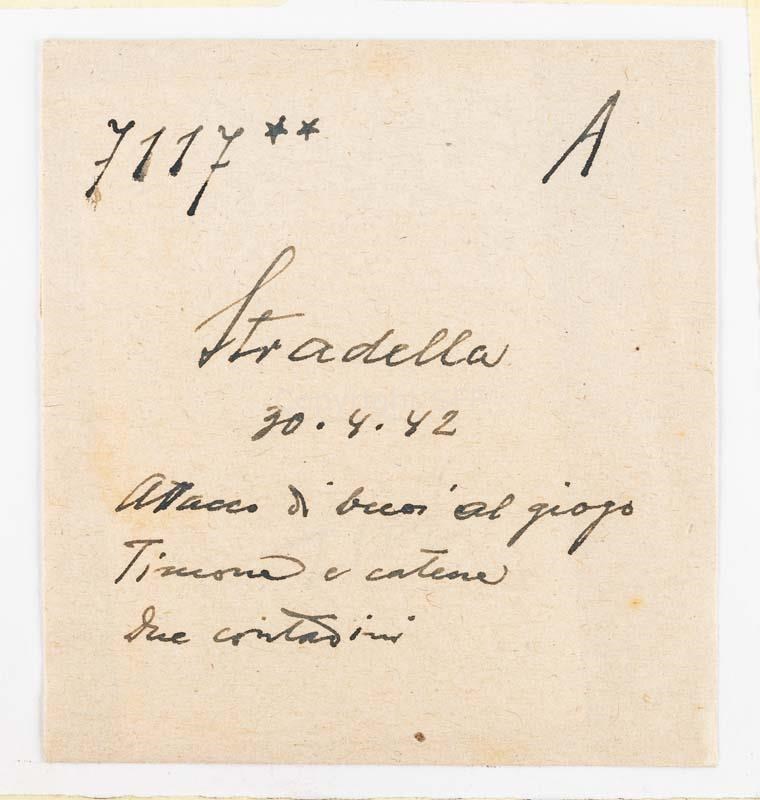 7117** A
Stradella
30.4.42
Attacco di buoi al giogo
Timone e catene
Due contadini